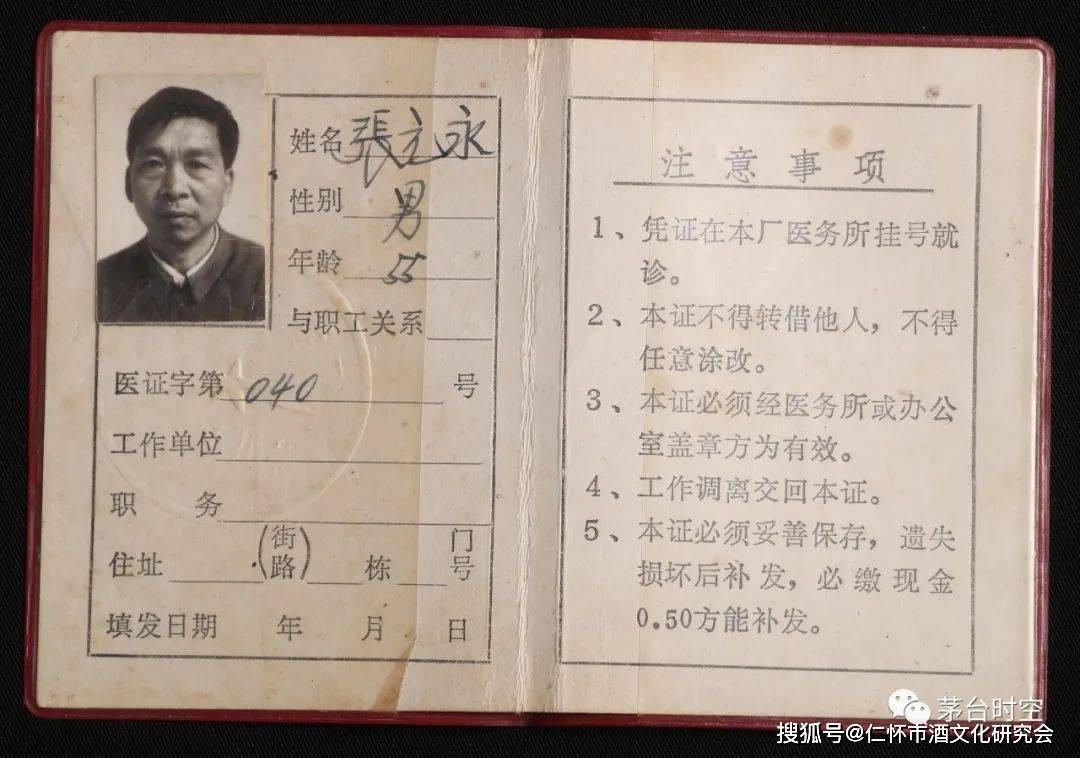 姓名 張立永
性别 男
年龄 55
与职工关系
医证字第 040 号
工作单位
职 务
住址 (街路) 栋 门号
填发日期 年 月 日
注意事项
1、凭证在本厂医务所挂号就
诊。
2、本证不得转借他人，不得
任意涂改。
3、本证必须经医务所或办公
室盖章方为有效。
4、工作调离交回本证。
5、本证必须妥善保存，遗失
损坏后补发，必缴现金
0.50方能补发。
茅台时空
搜狐号@仁怀市酒文化研究会